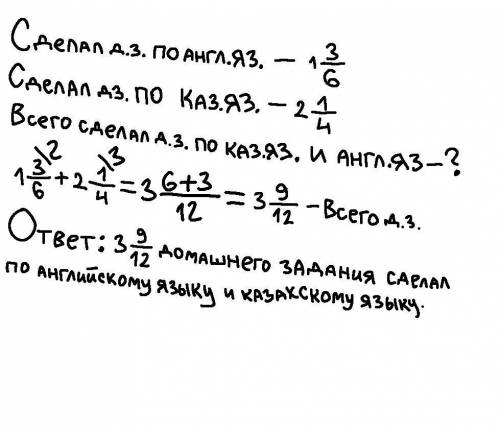 Сделал д.з. по англ.яз. – 1 3/6
Сделал дз. по каз.яз. – 2 1/4
Всего сделал д.з. по каз.яз. и англ.яз – ?
1 3/6 \2 + 2 1/4 \3 = 3 6+3/12 = 3 9/12 – Всего д.з.
Ответ: 3 9/12 домашнего задания сделал
по английскому языку и казахскому языку.